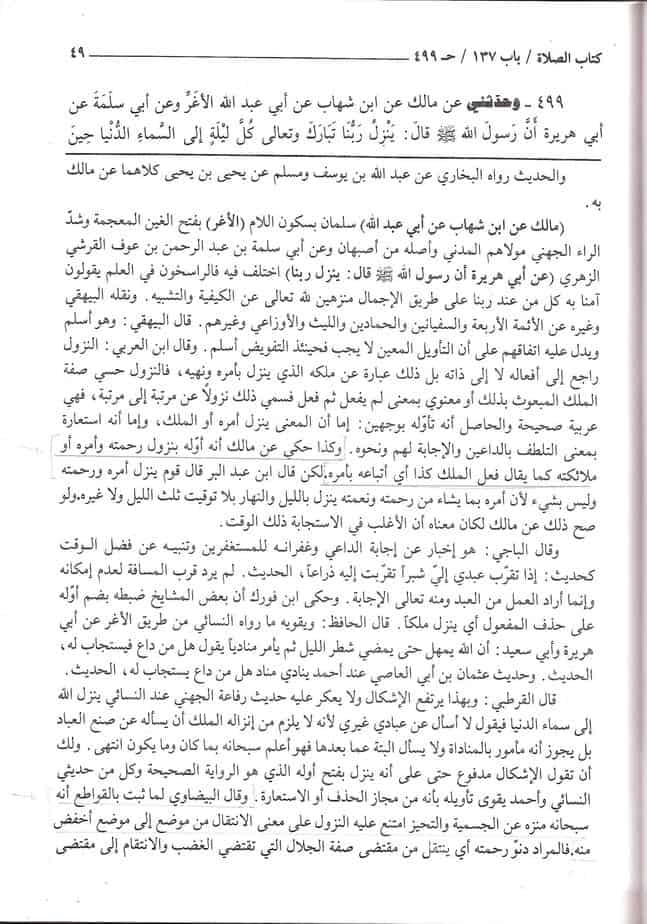 كتاب الصلاة / باب ١٣٧ / حـ ٤٩٩ ٤٩
٤٩٩ - وحدثني عن مالك عن ابن شهاب عن أبي عبد الله الأغَرِّ وعن أبي سلَمَةَ عن
أبي هريرة أَنَّ رَسولَ الله ﷺ قالَ: يَنْزِلُ رَبُّنا تَبَارَكَ وتعالى كُلَّ لَيْلَةٍ إلى السَّماءِ الدُّنْيا حِينَ
والحديث رواه البخاري عن عبد الله بن يوسف ومسلم عن يحيى بن يحيى كلاهما عن مالك
به.
(مالك عن ابن شهاب عن أبي عبد الله) سلمان بسكون اللام (الأغر) بفتح الغين المعجمة وشدّ
الراء الجهني مولاهم المدني وأصله من أصبهان وعن أبي سلمة بن عبد الرحمن بن عوف القرشي
الزهري (عن أبي هريرة أن رسول الله ﷺ قال: ينزل ربنا) اختلف فيه فالراسخون في العلم يقولون
آمنا به كل من عند ربنا على طريق الإجمال منزهين لله تعالى عن الكيفية والتشبيه. ونقله البيهقي
وغيره عن الأئمة الأربعة والسفيانين والحمادين والليث والأوزاعي وغيرهم. قال البيهقي: وهو أسلم
ويدل عليه اتفاقهم على أن التأويل المعين لا يجب فحينئذ التفويض أسلم. وقال ابن العربي: النزول
راجع إلى أفعاله لا إلى ذاته بل ذلك عبارة عن ملكه الذي ينزل بأمره ونهيه، فالنزول حسي صفة
الملك المبعوث بذلك أو معنوي بمعنى لم يفعل ثم فعل فسمي ذلك نزولاً عن مرتبة إلى مرتبة، فهي
عربية صحيحة والحاصل أنه تأوّله بوجهين: إما أن المعنى ينزل أمره أو الملك، وإما أنه استعارة
بمعنى التلطف بالداعين والإجابة لهم ونحوه. وكذا حكي عن مالك أنه أوّله بنزول رحمته وأمره أو
ملائكته كما يقال فعل الملك كذا أي أتباعه بأمره. لكن قال ابن عبد البر قال قوم ينزل أمره ورحمته
وليس بشيء لأن أمره بما يشاء من رحمته ونعمته ينزل بالليل والنهار بلا توقيت ثلث الليل ولا غيره. ولو
صح ذلك عن مالك لكان معناه أن الأغلب في الاستجابة ذلك الوقت.
وقال الباجي: هو إخبار عن إجابة الداعي وغفرانه للمستغفرين وتنبيه عن فضل الوقت
كحديث: إذا تقرّب عبدي إليّ شبراً تقرّبت إليه ذراعاً، الحديث. لم يرد قرب المسافة لعدم إمكانه
وإنما أراد العمل من العبد ومنه تعالى الإجابة. وحكى ابن فورك أن بعض المشايخ ضبطه بضم أوّله
على حذف المفعول أي ينزل ملكاً. قال الحافظ: ويقويه ما رواه النسائي من طريق الأغر عن أبي
هريرة وأبي سعيد: أن الله يمهل حتى يمضي شطر الليل ثم يأمر منادياً يقول هل من داع فيستجاب له،
الحديث. وحديث عثمان بن أبي العاصي عند أحمد ينادي مناد هل من داع يستجاب له، الحديث.
قال القرطبي: وبهذا يرتفع الإشكال ولا يعكر عليه حديث رفاعة الجهني عند النسائي ينزل الله
إلى سماء الدنيا فيقول لا أسأل عن عبادي غيري لأنه لا يلزم من إنزاله الملك أن يسأله عن صنع العباد
بل يجوز أنه مأمور بالمناداة ولا يسأل البتة عما بعدها فهو أعلم سبحانه بما كان وما يكون انتهى. ولك
أن تقول الإشكال مدفوع حتى على أنه ينزل بفتح أوله الذي هو الرواية الصحيحة وكل من حديثي
النسائي وأحمد يقوى تأويله بأنه من مجاز الحذف أو الاستعارة. وقال البيضاوي لما ثبت بالقواطع أنه
سبحانه منزه عن الجسمية والتحيز امتنع عليه النزول على معنى الانتقال من موضع إلى موضع أخفض
منه. فالمراد دنوّ رحمته أي ينتقل من مقتضى صفة الجلال التي تقتضي الغضب والانتقام إلى مقتضى